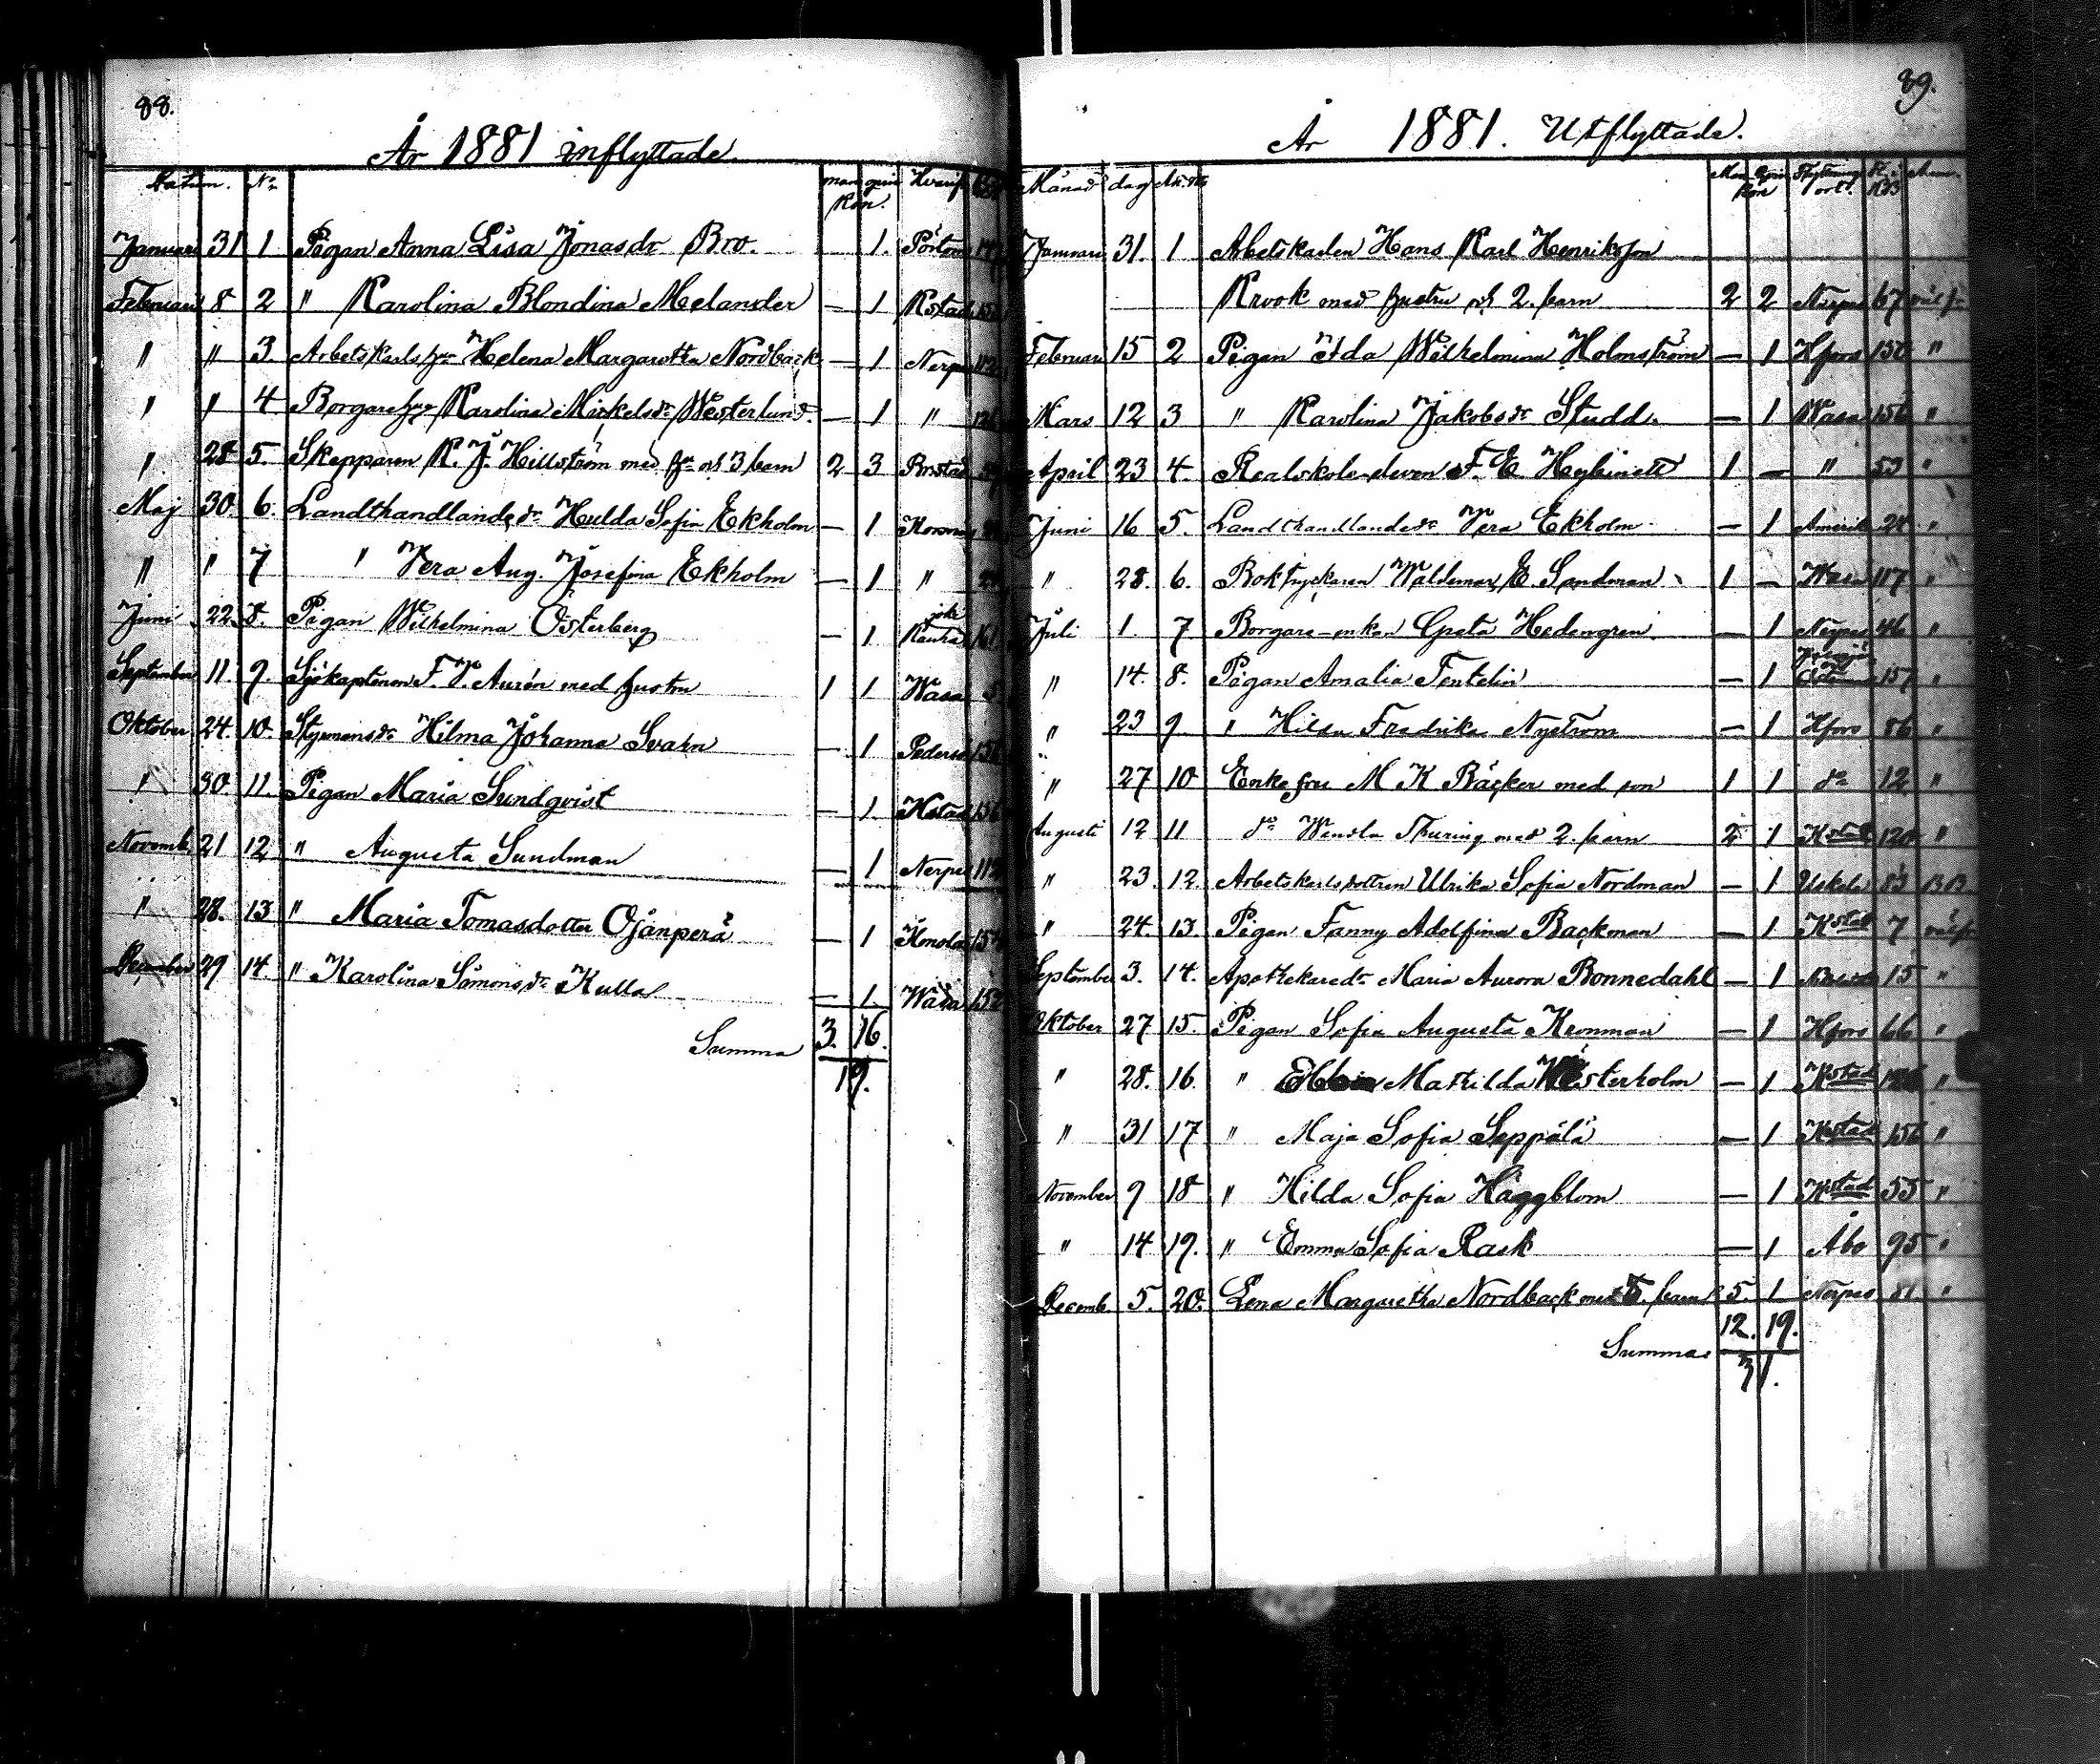 88.
År 1881 inflyttade.
Datum. No man qvin kön.
Januari 31 1 Pigan Anna Lisa Jonasdr Bro. 1. Pörtom
Februari 8 2 " Karolina Blondina Melander — 1 Kstad
" " 3. Arbetskarls hu Helena Margaretha Nordback — 1 Nerpes 112
" " 4 Borgare Karolina Mickelsdr Westerlund — 1 "
" 28 5. Skepparen K. J. Hillström med hu och 3 barn 2 3
Maj 30. 6. Landthandlandedr Hulda Sofia Ekholm — 1
" " 7 " Vera Aug. Josefina Ekholm — 1 "
Juni 22. 8. Pigan Wilhelmina Österberg — 1
September 11. 9. Sjökaptenen F. V. Aurén med hustru 1 1 Wasa
Oktober 24. 10. Styrmansdr Hilma Johanna Svahn — 1
" 30. 11. Pigan Maria Sundqvist — 1. Kstad 156
Novemb. 21 12 " Augusta Sundman — 1 Nerpes 112
" 28. 13 " Maria Tomasdotter Ojanperä — 1
December 29 14. " Karolina Simonsdr Kulla — 1. Wasa 152
Summa 3. 16.
19.
89.
År 1881. Utflyttade.
Månad dag Man Qvin kön Flyttnings ort.
Januari 31. 1 Arbetskarlen Hans Karl Henriksson
Krook med hustru och 2. barn 2 2 Nerpes 67
Februari 15 2 Pigan Ida Wilhelmina Holmström — 1 Hfors 150 "
Mars 12 3 " Karolina Jakobsdr Studd. — 1 Wasa 156 "
April 23 4. Realskole-eleven F. E. Heglinett 1 — " 53 "
Juni 16 5. Landthandlandedr Vera Ekholm — 1 Amerik 24 "
" 28. 6. Boktryckaren Waldemar E. Sandman 1 — Wasa 117 "
Juli 1. 7. Borgare-enkan Greta Hedengren. — 1 Nerpes 46 "
" 14. 8. Pigan Amalia Tentelin — 1 157 "
" 23 9. " Hilda Fredrika Nyström — 1 Hfors 86 "
" 27 10 Enkefru M K Bäcker med son 1 1 do 12 "
Augusti 12 11 do Wendla Thuring med 2. barn 2 1 Kstad 120 "
" 23. 12. Arbetskarlsdottren Ulrika Sofia Nordman — 1 Uskela 83
" 24. 13. Pigan Fanny Adolfina Backman — 1 Kstad 7
September 3. 14. Apothekaredr Maria Aurora Bonnedahl — 1 15 "
Oktober 27 15. Pigan Sofia Augusta Kronman — 1 Hfors 66 "
" 28. 16. " Mathilda Westerholm — 1 Kstad "
" 31 17 " Maja Sofia Seppälä — 1 Kstad 156 "
November 9 18 " Hilda Sofia Häggblom — 1 Kstad 55 "
" 14 19. " Emma Sofia Rask — 1 Åbo 95 "
Decemb. 5. 20. Lena Margaretha Nordback med 5. barn 5. 1 Nerpes 81 "
12. 19.
Summa
31.